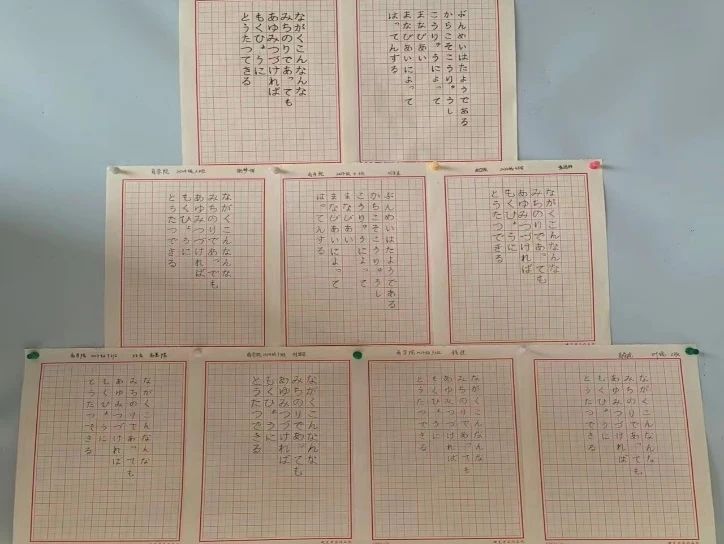 ながくこんなんな
みちのりであっても
あゆみつづければ
もくひょうに
とうたつてきる
ぶんめいはたようである
からこそこうりゅうし
こうりゅうによって
まなびあい
まなびあいによって
はってんする
ながくこんなんな
みちのりであっても
あゆみつづければ
もくひょうに
とうたつできる
ぶんめいはたようである
からこそこうりゅうし
こうりゅうによって
まなびあい
まなびあいによって
はってんする
ながくこんなんな
みちのりであっても
あゆみつづければ
もくひょうに
とうたつできる
商学院
ながくこんなんな
みちのりであっても
あゆみつづければ
もくひょうに
とうたつできる
商学院
ながくこんなんな
みちのりであっても
あゆみつづければ
もくひょうに
とうたつできる
商学院
ながくこんなんな
みちのりであっても
あゆみつづければ
もくひょうに
とうたつできる
ながくこんなんな
みちのりであっても
あゆみつづければ
もくひょうに
とうたつできる